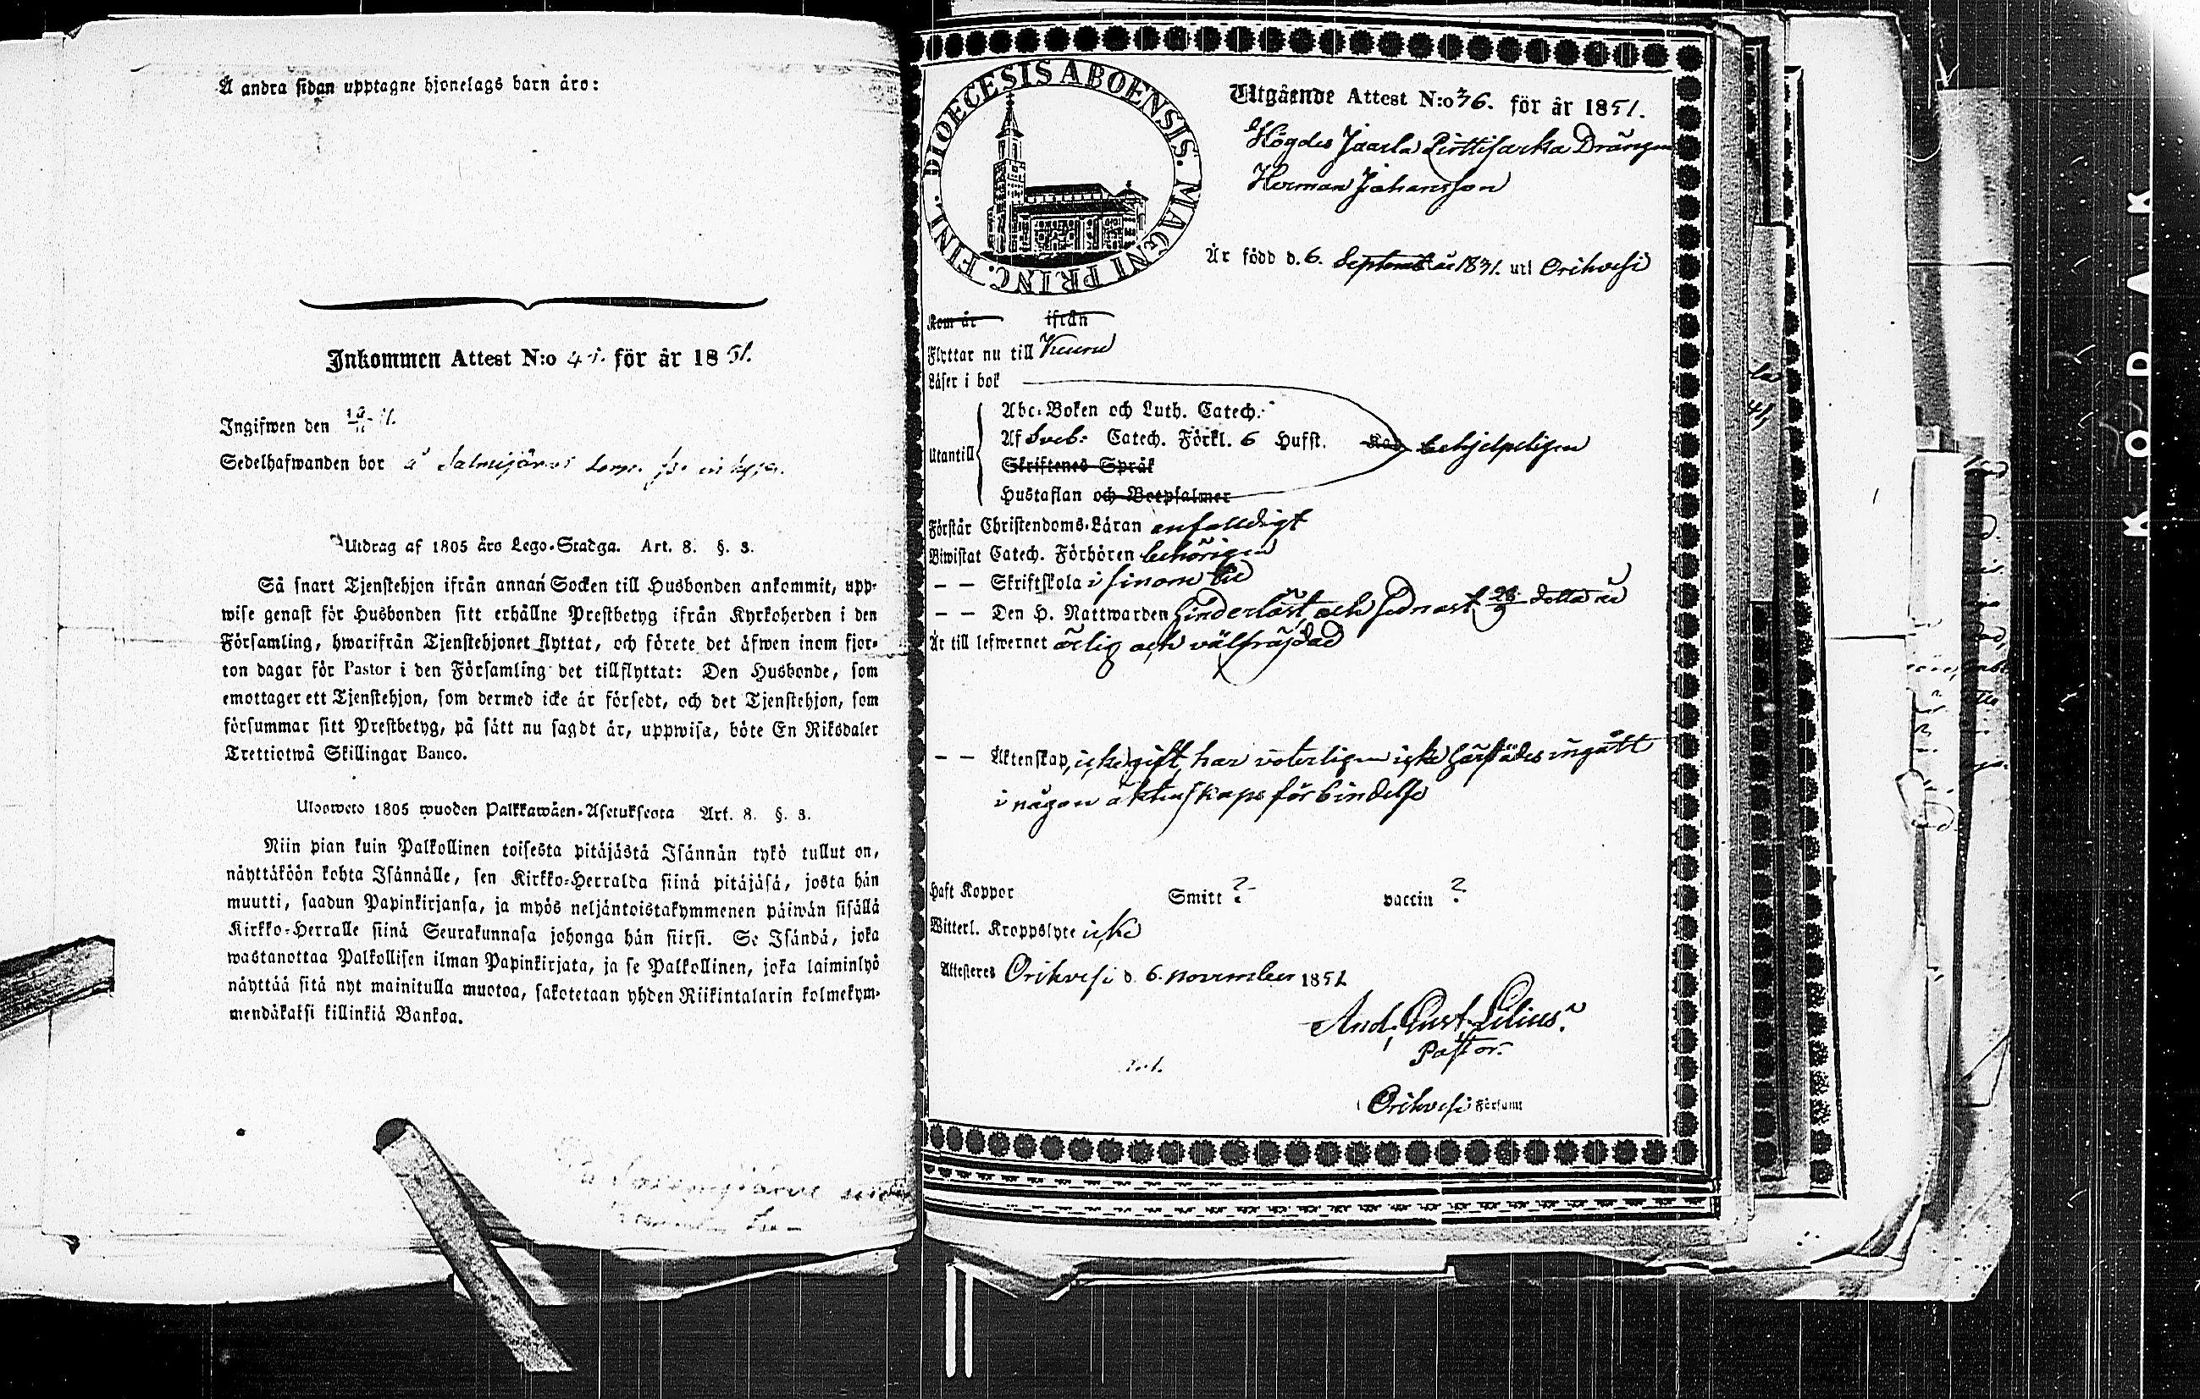 Å andra sidan upptagne hjonelags barn äro:
Inkommen Attest N:o för år 1851.
Ingifwen den
Sedelhafwanden bor å Salmijärvi
Utdrag af 1805 års Lego-Stadga. Art. 8. §. 3.
Så snart Tjenstehjon ifrån annan Socken till Husbonden ankommit, upp-
wise genast för Husbonden sitt erhållne Prestbetyg ifrån Kyrkoherden i den
Församling, hwarifrån Tjenstehjonet flyttat, och förete det äfwen inom fjor-
ton dagar för Pastor i den Församling det tillflyttat: Den Husbonde, som
emottager ett Tjenstehjon, som dermed icke är försedt, och det Tjenstehjon, som
försummar sitt Prestbetyg, på sätt nu sagdt är, uppwisa, böte En Riksdaler
Trettiotwå Skillingar Banco.
Ulosweto 1805 wuoden Palkkawäen-Asetuksesta Art. 8. §. 3.
Niin pian kuin Palkollinen toisesta pitäjästä Isännän tykö tullut on,
näyttäköön kohta Isännälle, sen Kirkko-Herralda siinä pitäjäsä, josta hän
muutti, saadun Papinkirjansa, ja myös neljäntoistakymmenen päiwän sisällä
Kirkko-Herralle siinä Seurakunnasa johonga hän siirsi. Se Isändä, joka
wastanottaa Palkollisen ilman Papinkirjata, ja se Palkollinen, joka laiminlyö
näyttää sitä nyt mainitulla muotoa, sakotetaan yhden Riikintalarin kolmekym-
mendäkaksi killinkiä Bankoa.
DIOECESIS ABOENSIS. MAGNI PRINC. FINL.
Utgående Attest N:o 36. för år 1851.
Högdes Jaarla Pirttisarka Drängen
Herman Johansson
Är född d. 6. September år 1831. uti Orihvesi
Kom år ifrån
Flyttar nu till Kuuru
Läser i bok
Utantill
Abc-Boken och Luth. Catech.
Af Sveb: Catech. Förkl. 6 Hufst. behjelpeligen
Skriftenes Språk
Hustaflan och Botpsalmer
Förstår Christendoms-Läran enfalldigt
Biwistat Catech. Förhören behörigen
— — Skriftskola i sinom tid
— — Den H. Nattwarden hinderlöst och sednast 28/9 detta år
Är till lefwernet ärlig och välfräjdad
— — Äktenskap, icke gift, har veterligen icke härstädes ingått
i någon äktenskapsförbindelse
Haft Koppor Smitt ? vaccin ?
Witterl. Kroppslyte icke
Attesteres Orihvesi d. 6. november 1851
And. Gust. Lilius.
Pastor.
i Orihvesi Församl
KODAK